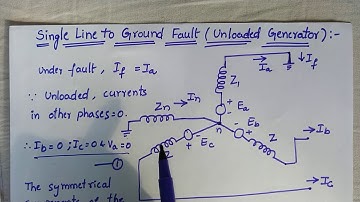 Single Line to Ground Fault (Unloaded Generator):-
Under fault, If = Ia
∵ Unloaded, currents
in other phases=0.
∴ Ib=0; Ic=0 & Va=0
①
The symmetrical
Zn → In
Z1
Ia
↓ If
+
Ea
-
- Eb +
Z
→ Ib
+ - Ec
Z
n
→ Ic